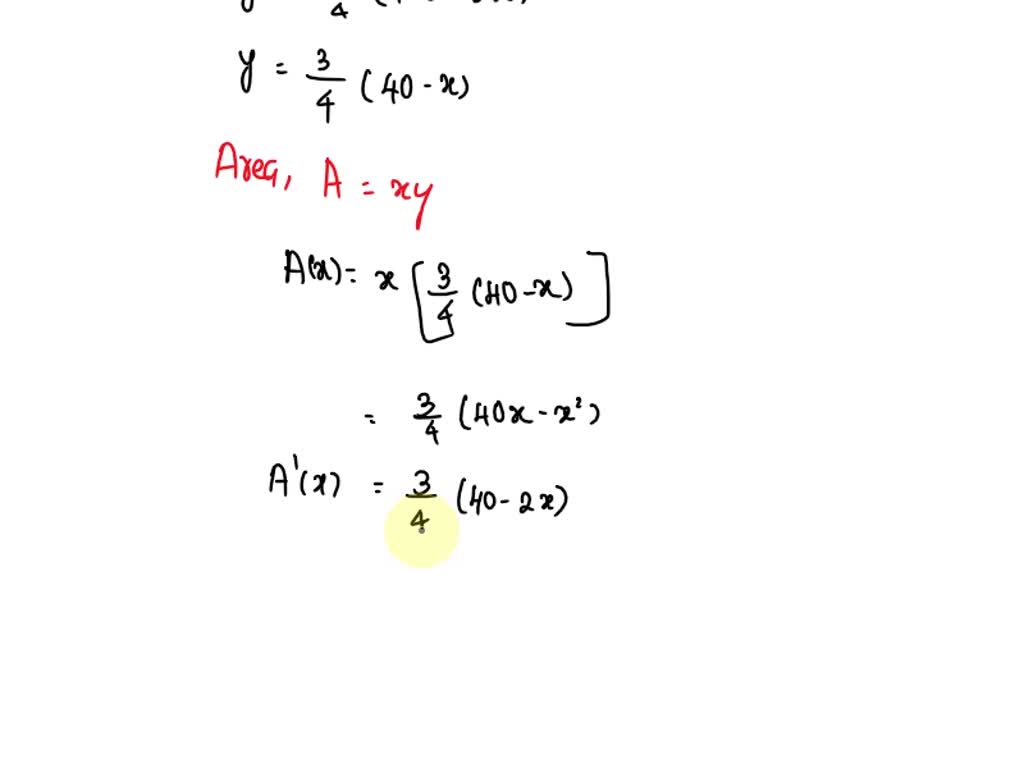 y = 3/4 (40 - x)
Area, A = xy
A(x) = x [3/4 (40 - x)]
= 3/4 (40x - x²)
A'(x) = 3/4 (40 - 2x)